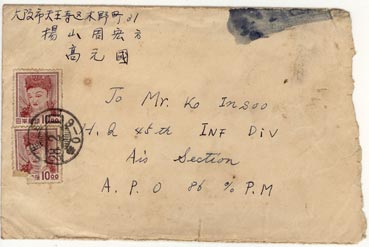 大阪市天王寺区木野町31
楊山周宏方
高元國
To Mr. Ko Insoo
H.Q 45th INF DIV
Air Section
A.P.O 86 % P.M
日本郵便
10.00
10.00